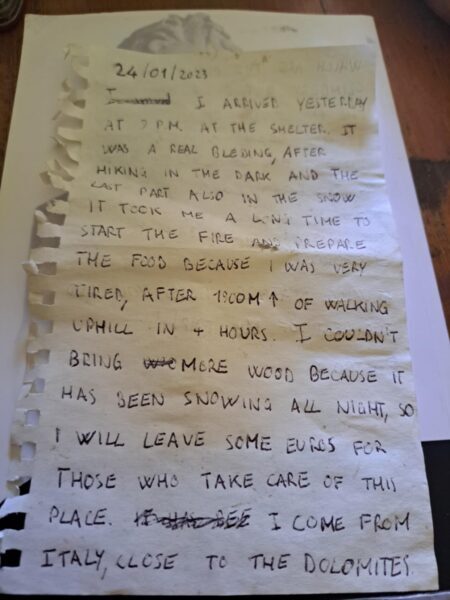 24/01/2023
I ARRIVED YESTERDAY
AT 9 P.M. AT THE SHELTER. IT
WAS A REAL BLESING, AFTER
HIKING IN THE DARK AND THE
LAST PART ALSO IN THE SNOW
IT TOOK ME A LONG TIME TO
START THE FIRE AND PREPARE
THE FOOD BECAUSE I WAS VERY
TIRED, AFTER ↑ OF WALKING
UPHILL IN 4 HOURS. I COULDN'T
BRING MORE WOOD BECAUSE IT
HAS BEEN SNOWING ALL NIGHT, SO
I WILL LEAVE SOME EUROS FOR
THOSE WHO TAKE CARE OF THIS
PLACE. I COME FROM
ITALY, CLOSE TO THE DOLOMITES.